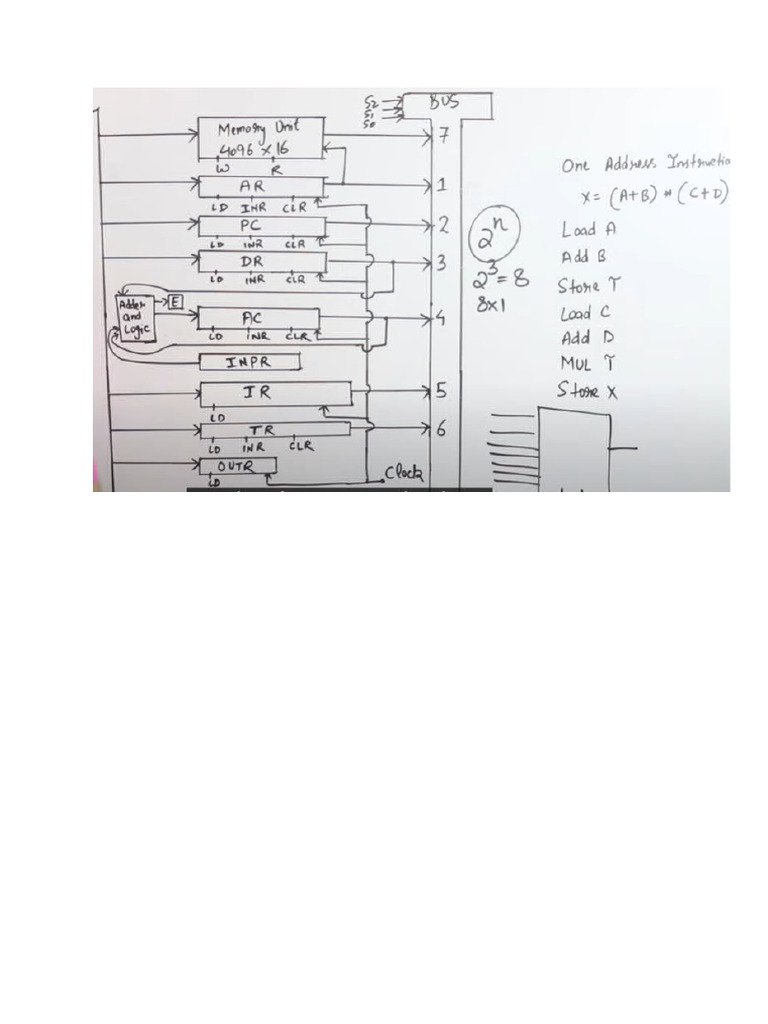 S2
S1
S0
BUS
Memory Unit
4096 × 16
W R
7
AR
1
LD INR CLR
PC
2
LD INR CLR
DR
3
LD INR CLR
Adder
and
Logic
E
AC
4
LD INR CLR
INPR
IR
5
LD
TR
6
LD INR CLR
OUTR
LD
Clock
2^n
2^3 = 8
8×1
One Address Instructio
X = (A+B) * (C+D)
Load A
Add B
Store T
Load C
Add D
MUL T
Store X